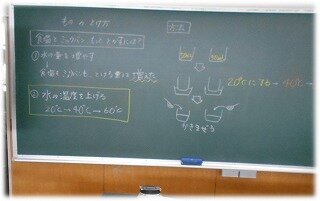 ものの とけ方
食塩とミョウバン もっと とかすには?
① 水の量を増やす
食塩もミョウバンも、とける量は 増えた
② 水の温度を上げる
20℃→40℃→60℃
方法
50mL
50mL
20℃にする→40℃→
かきまぜる